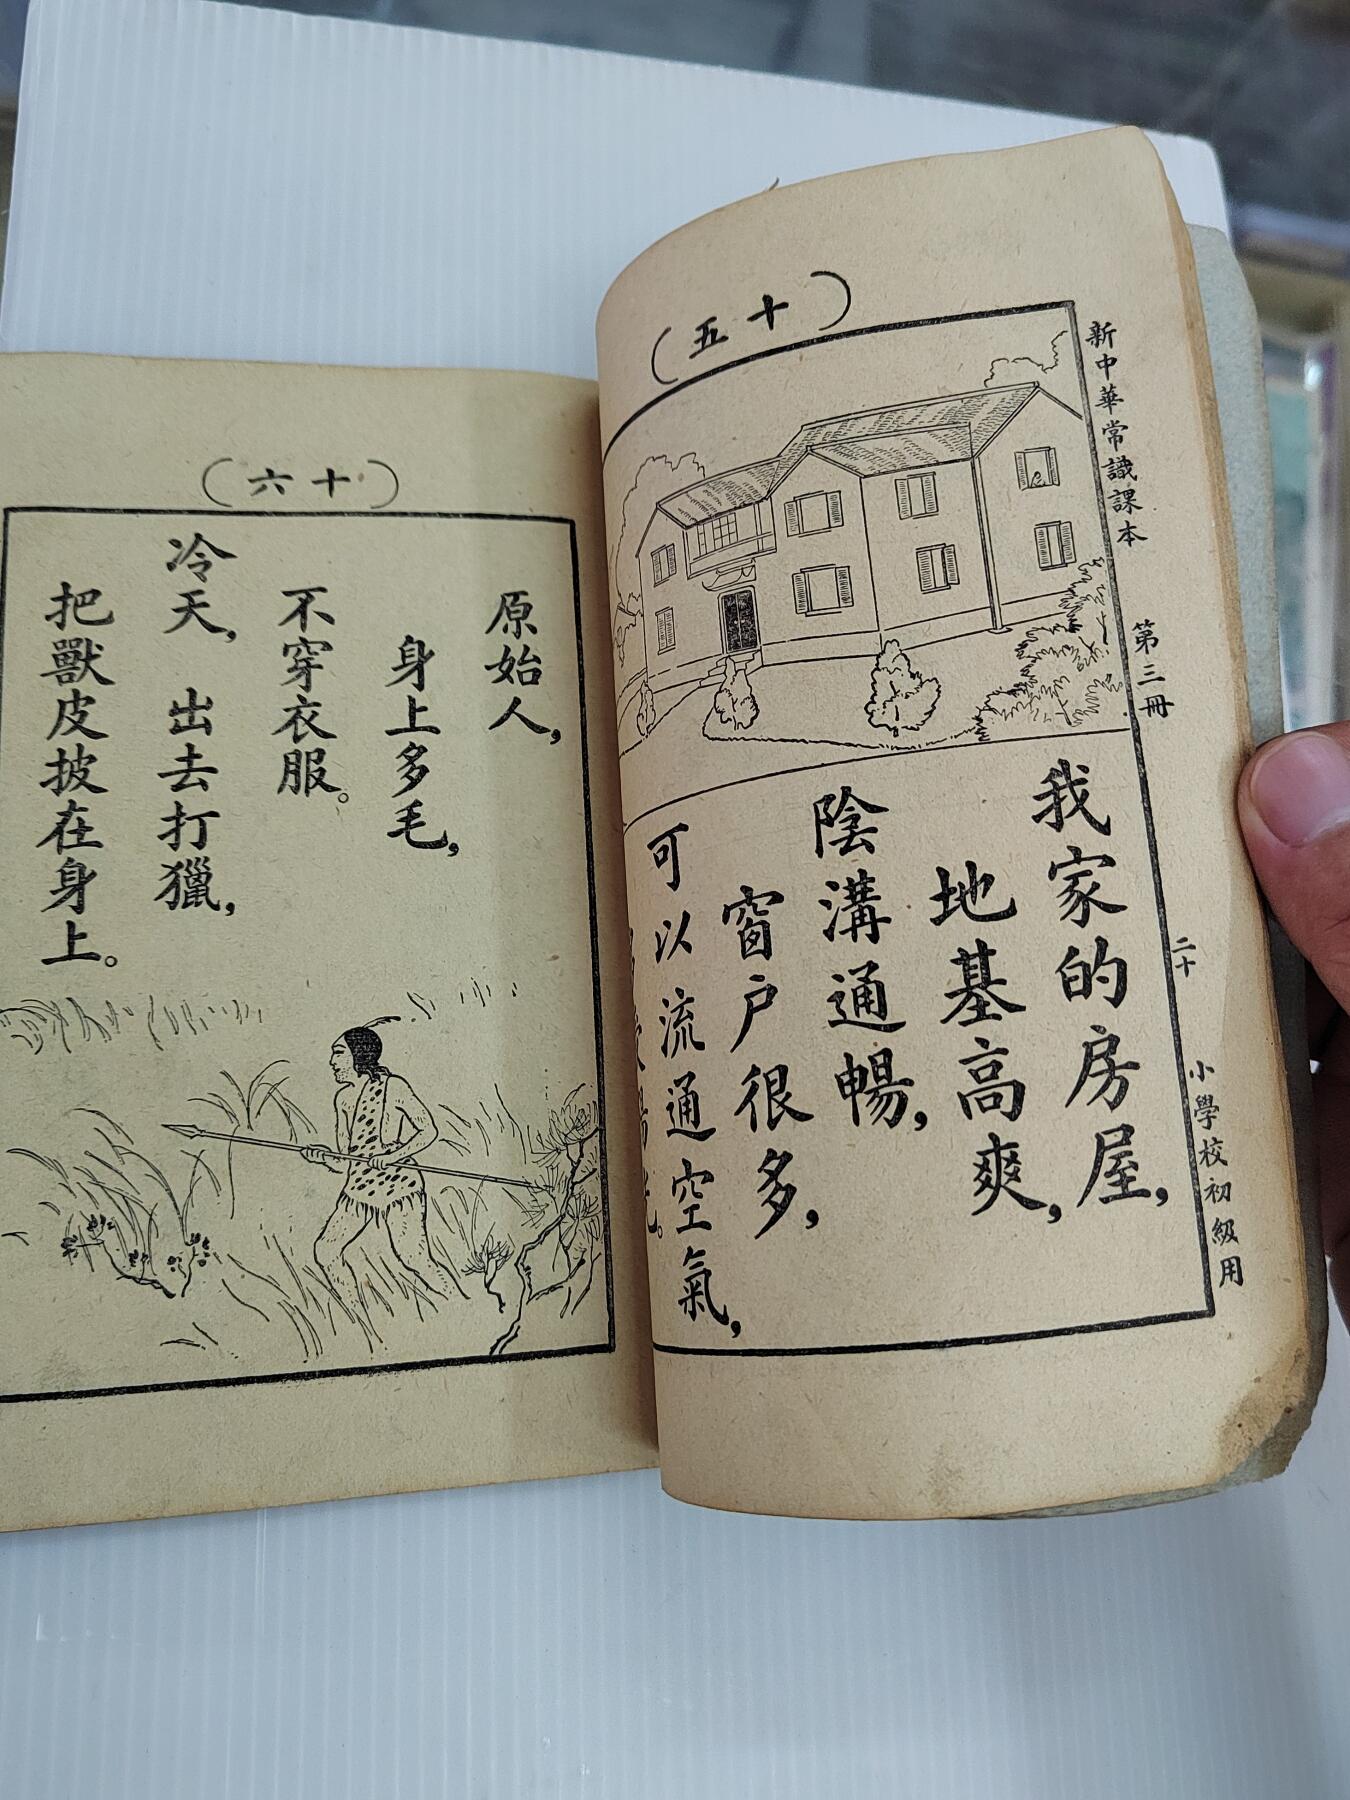 新中華常識課本
第三冊
二十
小學校初級用
(十五)
我家的房屋，
地基高爽，
陰溝通暢，
窗戶很多，
可以流通空氣，
(十六)
原始人，
身上多毛，
不穿衣服。
冷天，出去打獵，
把獸皮披在身上。